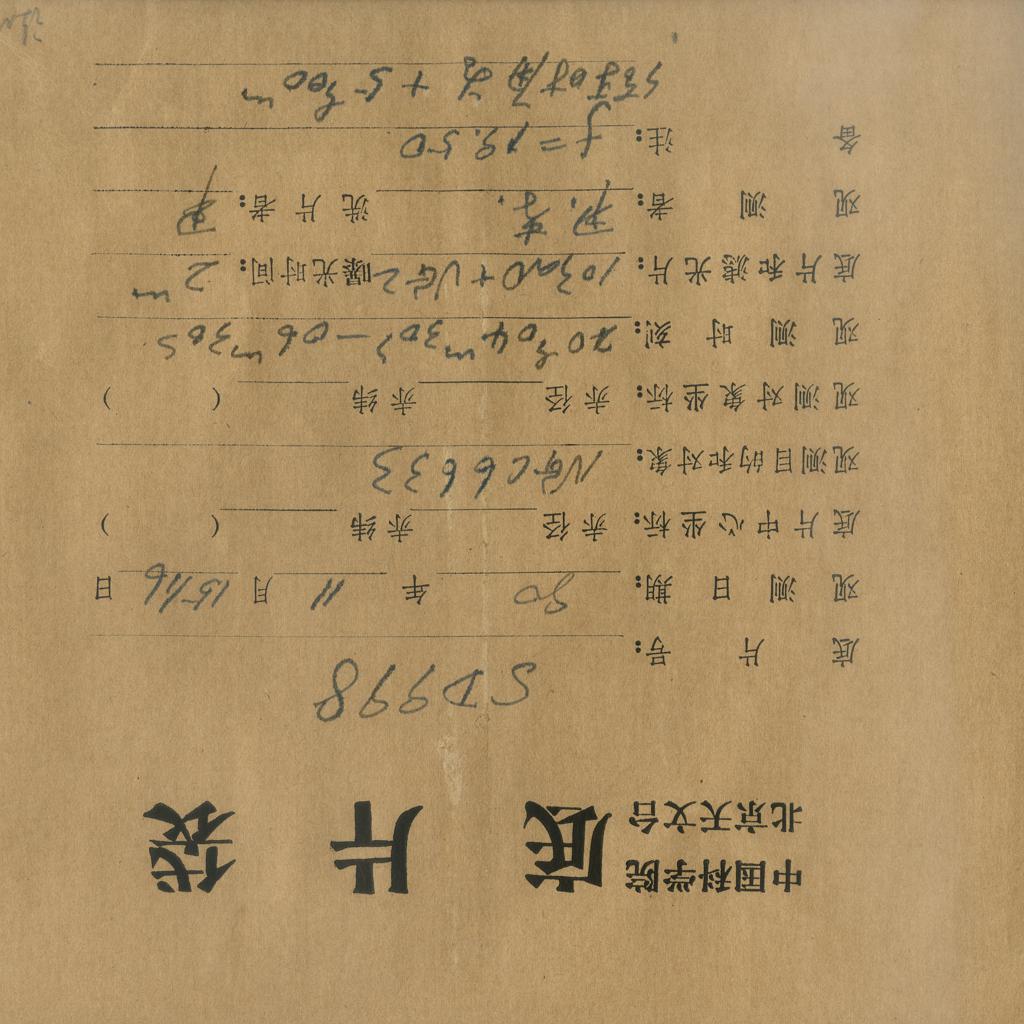 中国科学院
北京天文台
底片袋
底片号: SD998
观测日期: 80年11月15/16日
底片中心坐标: 赤径 赤纬 ( )
观测目的和对象: NGC6633
观测对象坐标: 赤径 赤纬 ( )
观测时刻: 20h04m30s—06m30s
底片和滤光片: 103aD+VG2 曝光时间: 2m
观测者: 洗片者:
备注: f=19.50
时角为 +5h00m